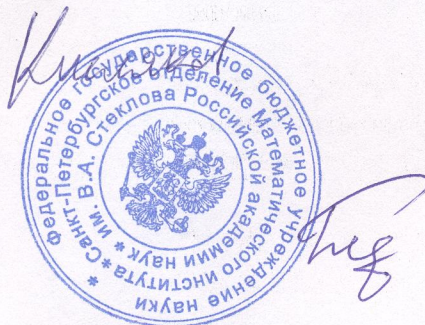 * Федеральное государственное бюджетное учреждение науки
* Санкт-Петербургское отделение Математического института
* им. В.А. Стеклова Российской академии наук